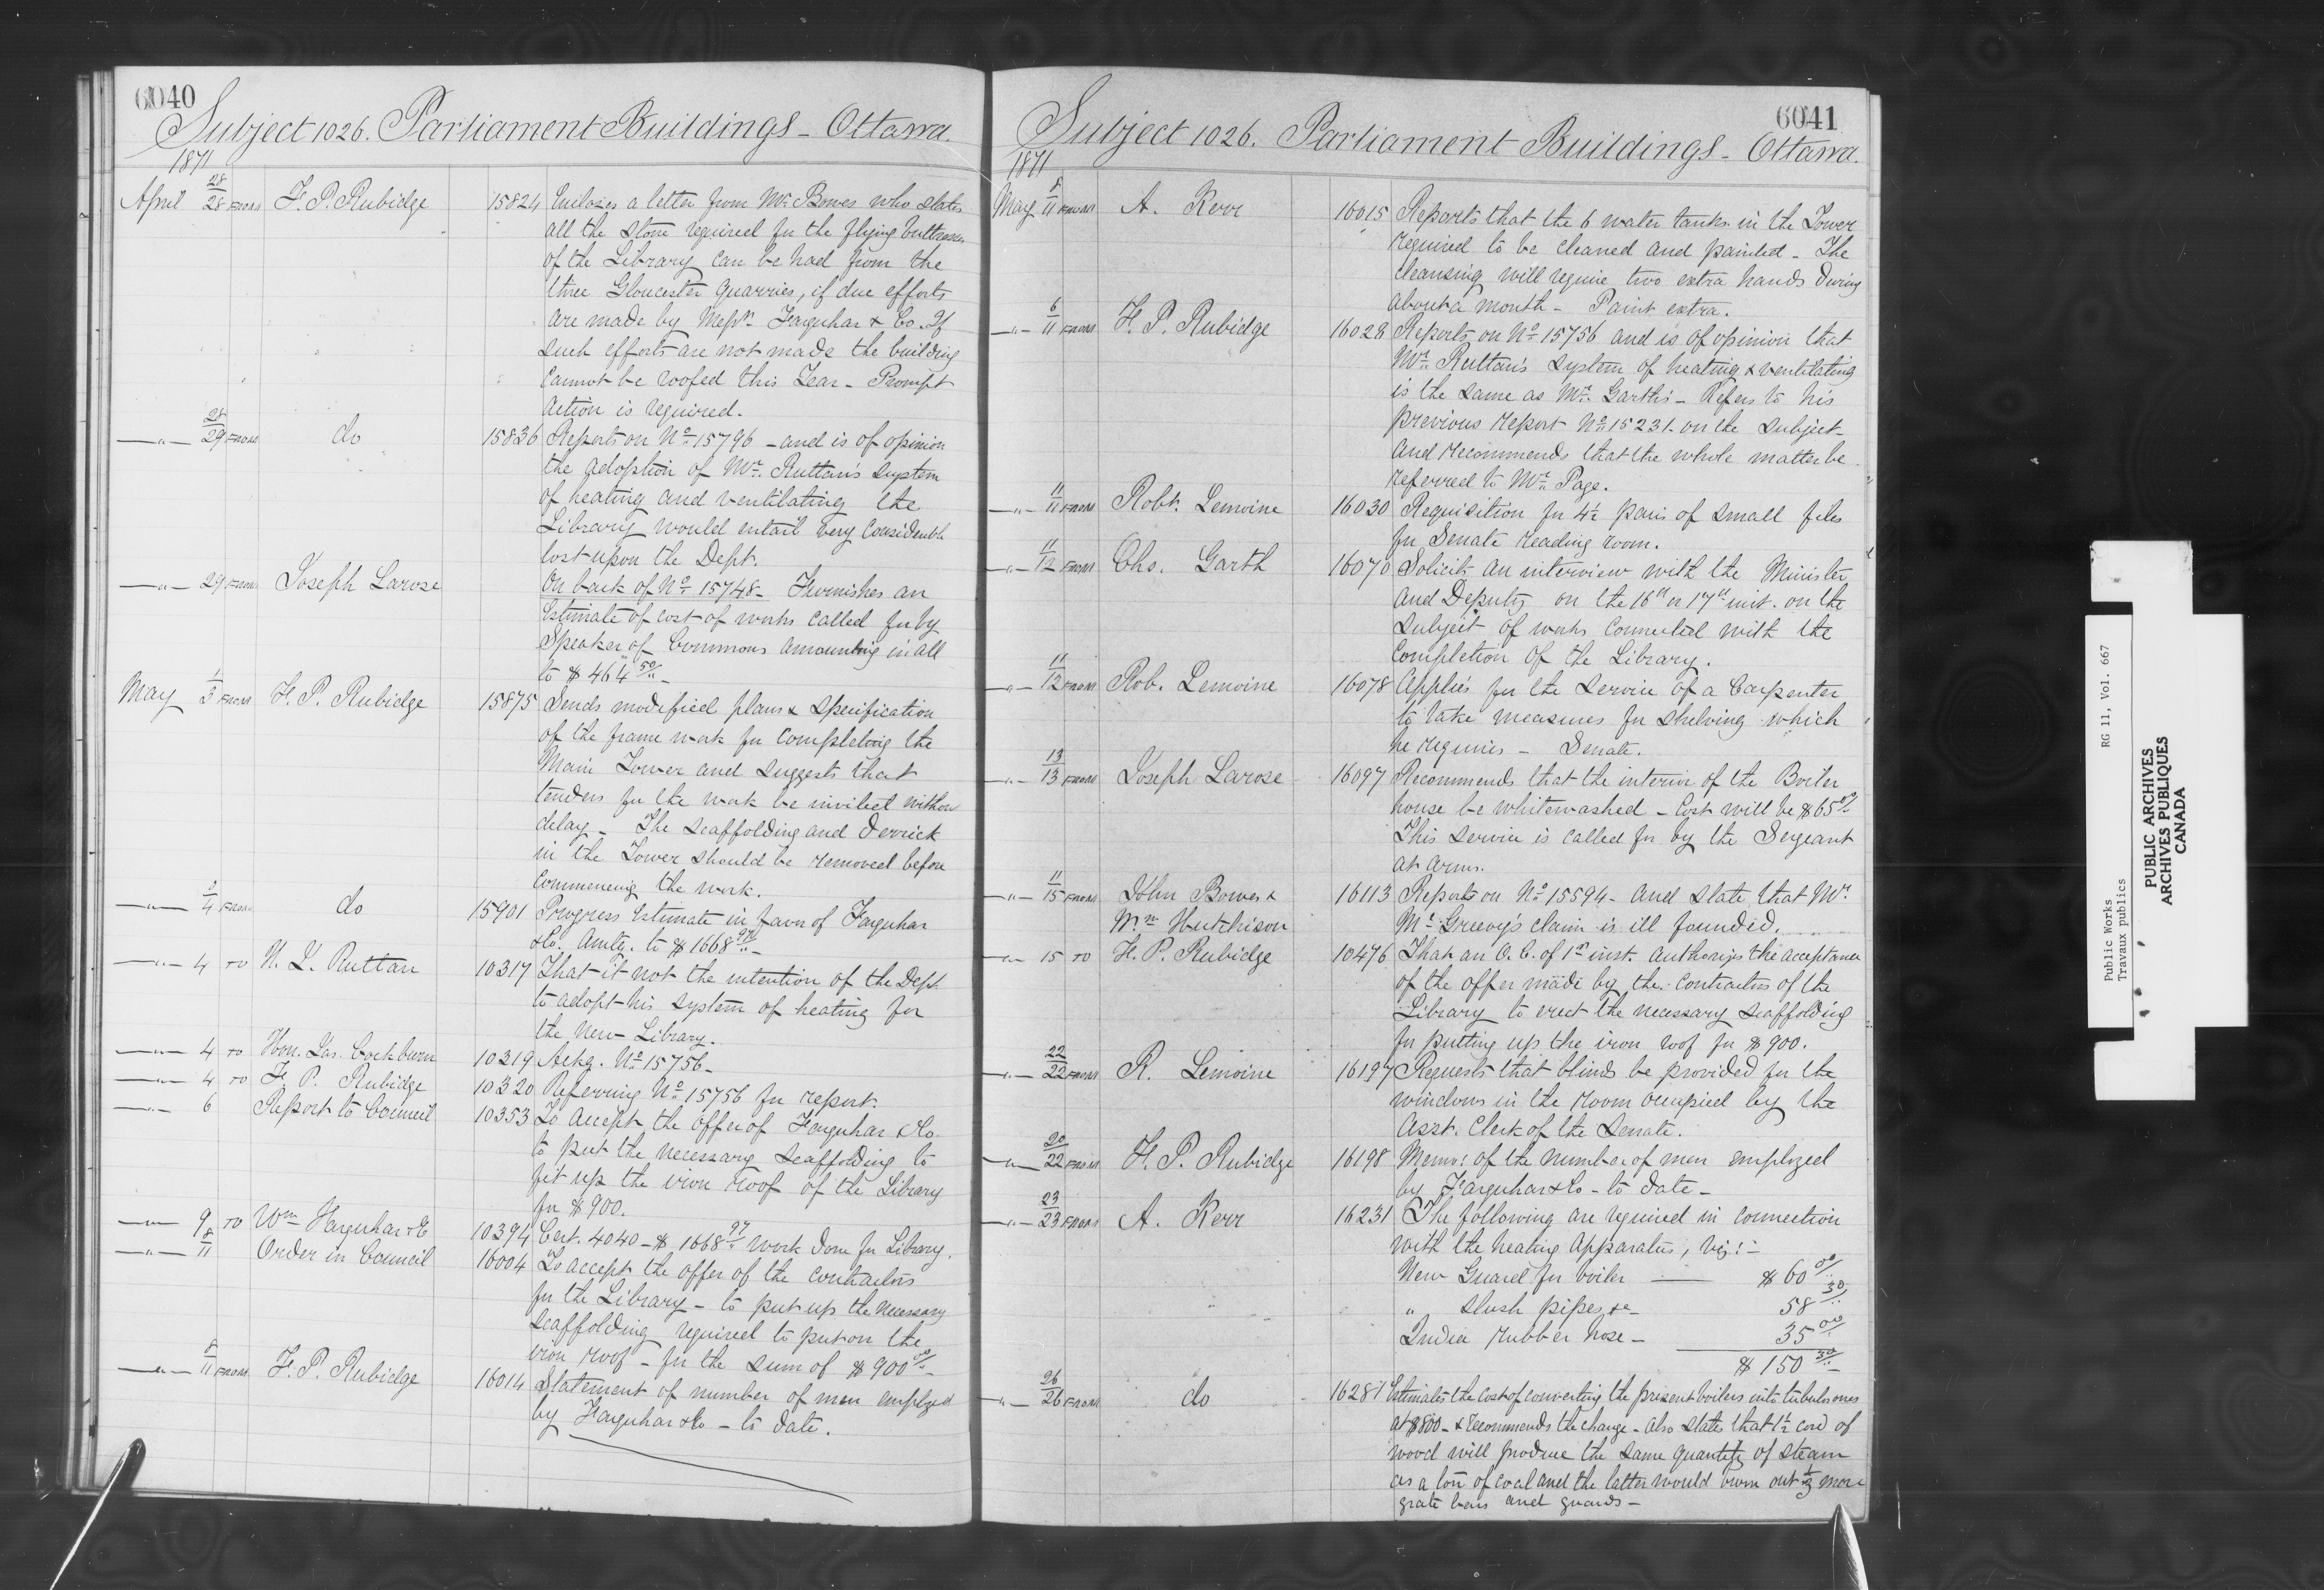 6040
Subject 1026. Parliament Buildings - Ottawa.
1871
April 28/28 FROM F. P. Rubidge 15824 Encloses a letter from Mr. Bowes who states
all the stone required for the flying buttresses
of the Library can be had from the
three Gloucester quarries, if due efforts
are made by Messrs. Farquhar & Co. If
such efforts are not made the building
cannot be roofed this Year - Prompt
action is required.
—"— 28/29 FROM do 15836 Reports on No. 15796 - and is of opinion
the adoption of Mr. Ruttan's system
of heating and ventilating the
Library would entail very considerable
cost upon the Dept.
—"— 29 FROM Joseph Larose On back of No. 15748 - Furnishes an
Estimate of cost of works called for by
Speaker of Commons amounting in all
to $464 50/..-
May 1/3 FROM F. P. Rubidge 15875 Sends modified plans & specification
of the frame work for completing the
Main Tower and suggests that
tenders for the work be invited without
delay - The scaffolding and derrick
in the Tower should be removed before
commencing the work.
—"— 2/4 FROM do 15901 Progress Estimate in favor of Farquhar
& Co. Amtg. to $1668 97/..-
—"— 4 TO H. L. Ruttan 10317 That it not the intention of the Dept.
to adopt his system of heating for
the New Library.
—"— 4 TO Hon. Jas. Cockburn 10319 Ackg. No. 15756 -
—"— 4 TO F. P. Rubidge 10320 Referring No. 15756 for report.
—"— 6 Report to Council 10353 To accept the offer of Farquhar & Co.
to put the necessary scaffolding to
fit up the iron roof of the Library
for $900.
—"— 9 TO Wm Farquhar & Co 10394 Cert. 4040 - $1668 97/.. work done for Library.
—"— 8/11 Order in Council 16004 To accept the offer of the contractors
for the Library - to put up the necessary
scaffolding required to put on the
iron roof - for the sum of $900 00/..-
—"— 8/11 FROM F. P. Rubidge 16014 Statement of number of men employed
by Farquhar & Co - to date.
6041
Subject 1026. Parliament Buildings - Ottawa.
1871
May 8/11 FROM A. Kerr 16015 Reports that the 6 water tanks in the Tower
required to be cleaned and painted - The
cleansing will require two extra hands during
about a month - Paint extra.
—"— 6/11 FROM F. P. Rubidge 16028 Reports on No. 15756 and is of opinion that
Mr. Ruttan's system of heating & ventilating
is the same as Mr. Garth's - Refers to his
previous report No. 15231 - on the subject -
and recommends that the whole matter be
referred to Mr. Page.
—"— 11/11 FROM Robt. Lemoine 16030 Requisition for 4½ pairs of small files
for Senate reading room.
—"— 11/12 FROM Chs. Garth 16070 Solicits an interview with the Minister
and Deputy on the 16th or 17th inst. on the
subject of works connected with the
completion of the Library.
—"— 11/12 FROM Rob. Lemoine 16078 Applies for the service of a Carpenter
to take measures for shelving which
he requires - Senate.
—"— 13/13 FROM Joseph Larose 16097 Recommends that the interior of the Boiler
house be whitewashed - Cost will be $65 00/..
This service is called for by the Sergeant
at Arms.
—"— 11/15 FROM John Bowes & 16113 Reports on No. 15594 - and state that Mr.
Wm Hutchison McGreevy's claim is ill founded.
—"— 15 TO F. P. Rubidge 10476 That an O. C. of 1st inst. authorizes the acceptance
of the offer made by the contractors of the
Library to erect the necessary scaffolding
for putting up the iron roof for $900.
—"— 22/22 FROM R. Lemoine 16197 Requests that blinds be provided for the
windows in the room occupied by the
Asst. Clerk of the Senate.
—"— 20/22 FROM F. P. Rubidge 16198 Memo: of the number of men employed
by Farquhar & Co - to date -
—"— 23/23 FROM A. Kerr 16231 The following are required in connection
with the heating Apparatus, viz: -
New Guard for boiler — $60 00/..
" slush pipes &c - 58 30/..
India rubber hose - 35 00/..
$150 30/..-
—"— 26/26 FROM do 16287 Estimates the cost of converting the present boilers into tubular ones
at $800 - & recommends the change - also states that 1½ cord of
wood will produce the same quantity of steam
as a ton of coal and the latter would burn out ⅓ more
grate bars and guards -
Public Works RG 11, Vol. 667
Travaux publics
PUBLIC ARCHIVES
ARCHIVES PUBLIQUES
CANADA